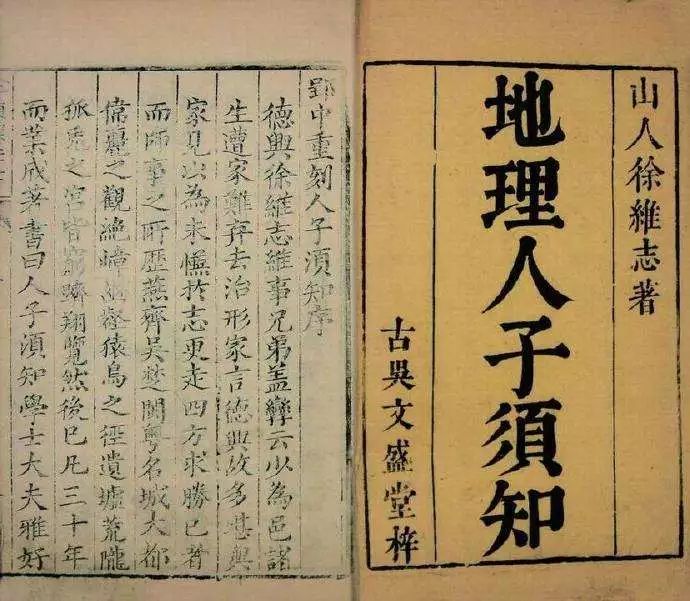 山人徐維志著
地理人子須知
古吳文盛堂梓
郢中重刻人子須知序
德興徐維志維事兄弟蓋孿云少為邑諸
生遭家難弃去治形家言德興故多堪輿
家見以為未愜於志更走四方求勝已者
而師事之所歷燕齊吳楚閩粵名城大都
偉麗之觀絶嶂壑猿鳥之徑遺墟荒隴
狐兔之宮皆窮躋翔覽然後已凡三十年
而業成著書曰人子須知學士大夫雅好